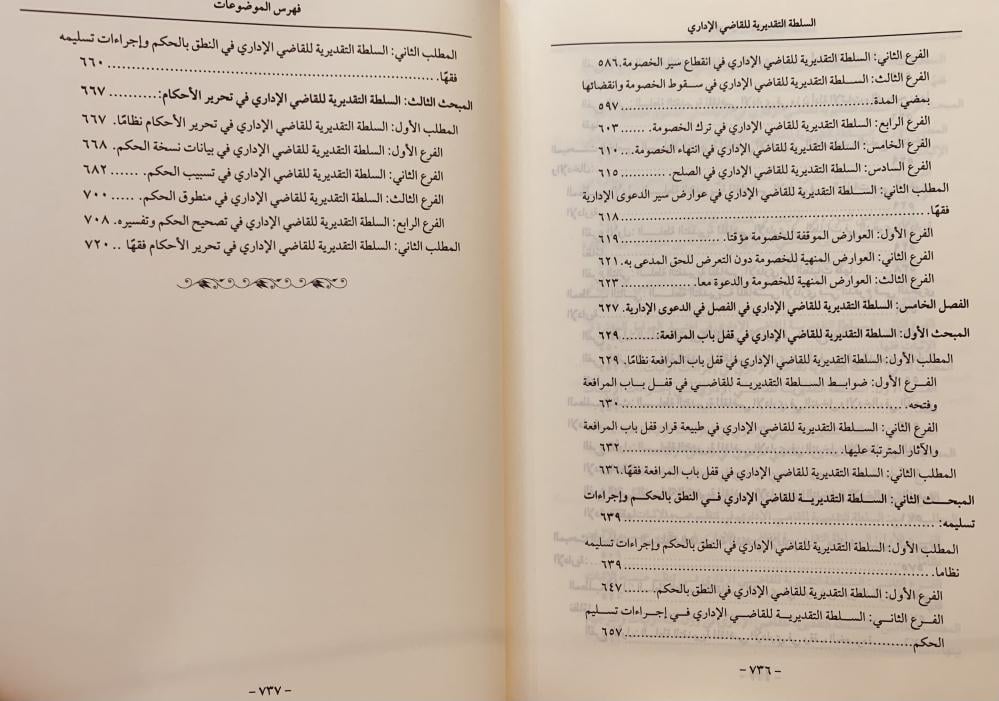 السلطة التقديرية للقاضي الإداري
الفرع الثاني: السلطة التقديرية للقاضي الإداري في انقطاع سير الخصومة. ٥٨٦
الفرع الثالث: الســلطة التقديرية للقاضي الإداري في ســقوط الخصومة وانقضائها
بمضي المدة................................................ ٥٩٧
الفرع الرابع: السلطة التقديرية للقاضي الإداري في ترك الخصومة. ...... ٦٠٣
الفرع الخامس: السلطة التقديرية للقاضي الإداري في انتهاء الخصومة... ٦١٠
الفرع السادس: السلطة التقديرية للقاضي الإداري في الصلح. ............ ٦١٥
المطلب الثاني: الســلطة التقديرية للقاضي الإداري في عوارض سير الدعوى الإدارية
فقهًا. ................................................ ٦١٨
الفرع الأول: العوارض الموقفة للخصومة مؤقتا. .................... ٦١٩
الفرع الثاني: العوارض المنهية للخصومة دون التعرض للحق المدعى به. ٦٢١
الفرع الثالث: العوارض المنهية للخصومة والدعوة معا. ................ ٦٢٣
الفصل الخامس: السلطة التقديرية للقاضي الإداري في الفصل في الدعوى الإدارية. ٦٢٧
المبحث الأول: السلطة التقديرية للقاضي الإداري في قفل باب المرافعة: ........ ٦٢٩
المطلب الأول: السلطة التقديرية للقاضي الإداري في قفل باب المرافعة نظامًا. ٦٢٩
الفــرع الأول: ضوابــط الســلطة التقديريــة للقاضــي في قفــل بــاب المرافعة
وفتحه. ................................................ ٦٣٠
الفرع الثاني: الســلطة التقديرية للقاضي الإداري في طبيعة قرار قفل باب المرافعة
والآثار المترتبة عليها. ........................................ ٦٣٢
المطلب الثاني: السلطة التقديرية للقاضي الإداري في قفل باب المرافعة فقهًا. ٦٣٦
المبحــث الثاني: الســلطة التقديريــة للقاضي الإداري فــي النطق بالحكــم وإجراءات
تسليمه: ................................................ ٦٣٩
المطلب الأول: السلطة التقديرية للقاضي الإداري في النطق بالحكم وإجراءات تسليمه
نظاما. ................................................ ٦٣٩
الفرع الأول: السلطة التقديرية للقاضي الإداري في النطق بالحكم. ...... ٦٤٧
الفــرع الثانــي: الســلطة التقديريــة للقاضــي الإداري فــي إجــراءات تســليم
الحكم................................................ ٦٥٧
- ٧٣٦ -
فهرس الموضوعات
المطلب الثاني: السلطة التقديرية للقاضي الإداري في النطق بالحكم وإجراءات تسليمه
فقهًا. ................................................ ٦٦٠
المبحث الثالث: السلطة التقديرية للقاضي الإداري في تحرير الأحكام: .......... ٦٦٧
المطلب الأول: السلطة التقديرية للقاضي الإداري في تحرير الأحكام نظامًا. ٦٦٧
الفرع الأول: السلطة التقديرية للقاضي الإداري في بيانات نسخة الحكم. ٦٦٨
الفرع الثاني: السلطة التقديرية للقاضي الإداري في تسبيب الحكم. ...... ٦٨٢
الفرع الثالث: السلطة التقديرية للقاضي الإداري في منطوق الحكم. ...... ٧٠٠
الفرع الرابع: السلطة التقديرية للقاضي الإداري في تصحيح الحكم وتفسيره. ٧٠٨
المطلب الثاني: السلطة التقديرية للقاضي الإداري في تحرير الأحكام فقهًا .. ٧٢٠
- ٧٣٧ -